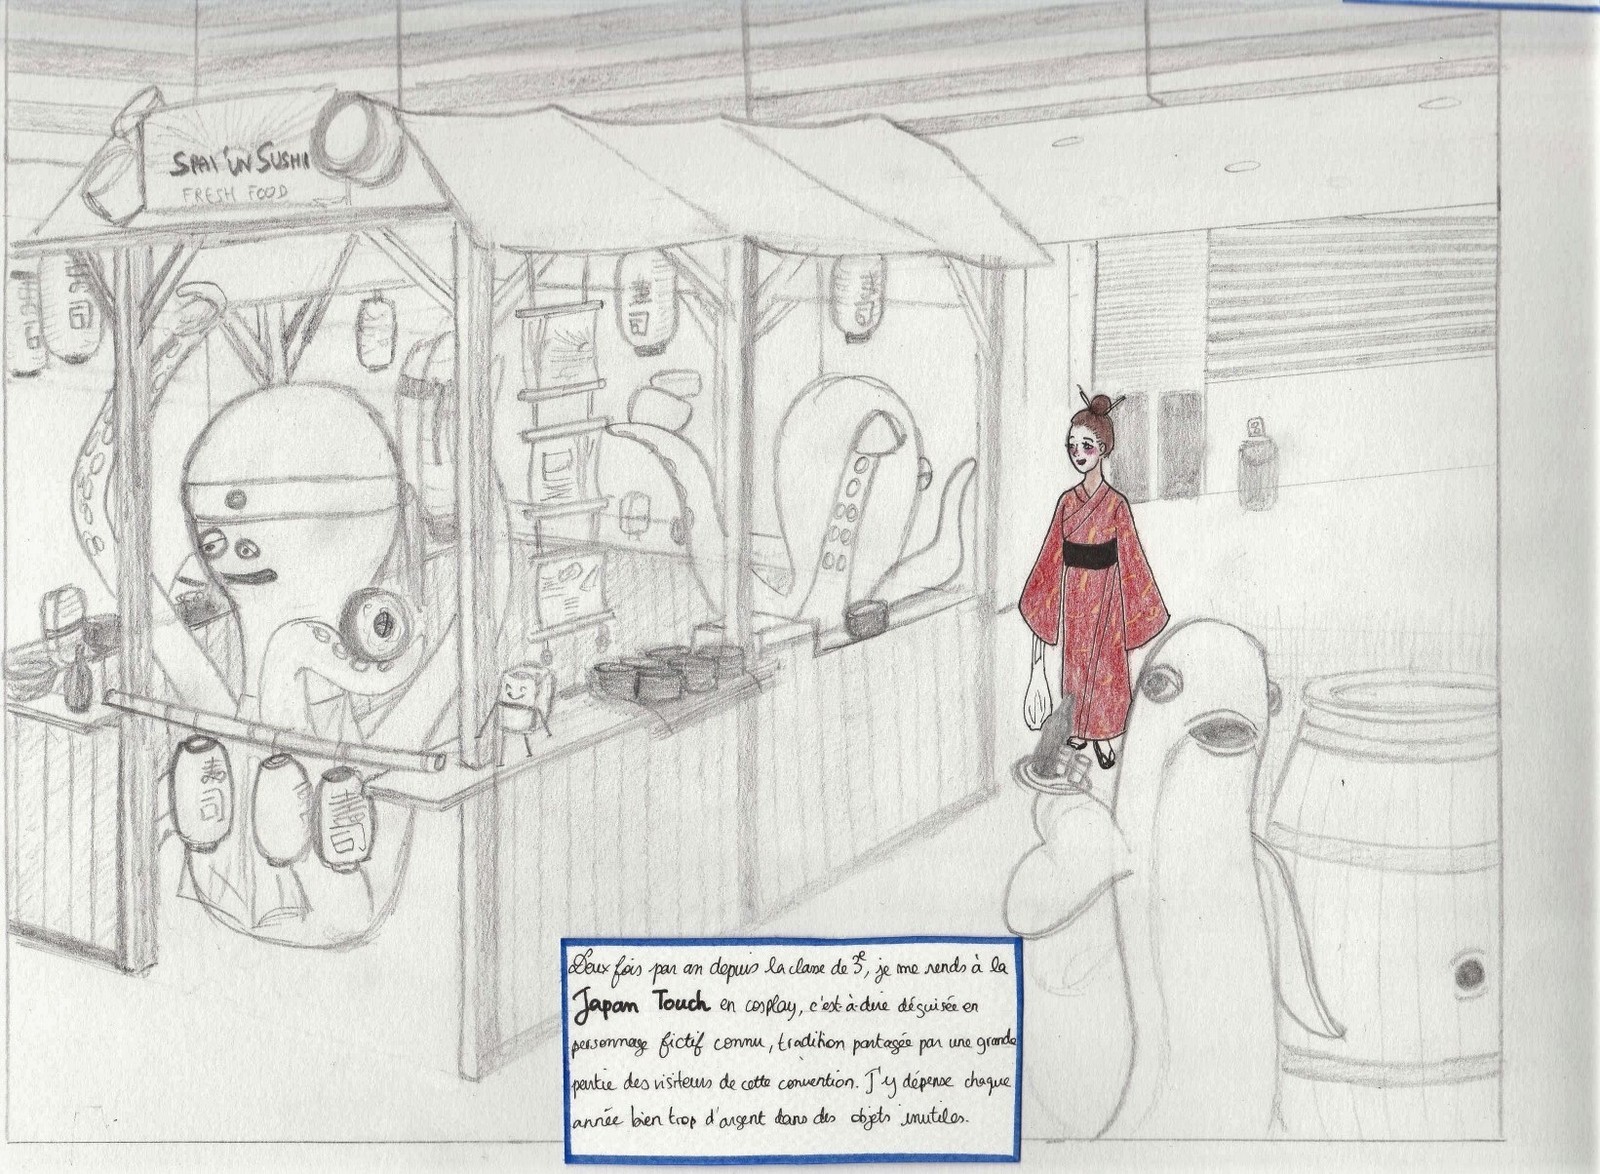 SPAI'UN SUSHI
FRESH FOOD
Deux fois par an depuis la classe de 3e, je me rends à la
Japan Touch en cosplay, c'est-à-dire déguisée en
personnage fictif connu, tradition partagée par une grande
partie des visiteurs de cette convention. J'y dépense chaque
année bien trop d'argent dans des objets inutiles.